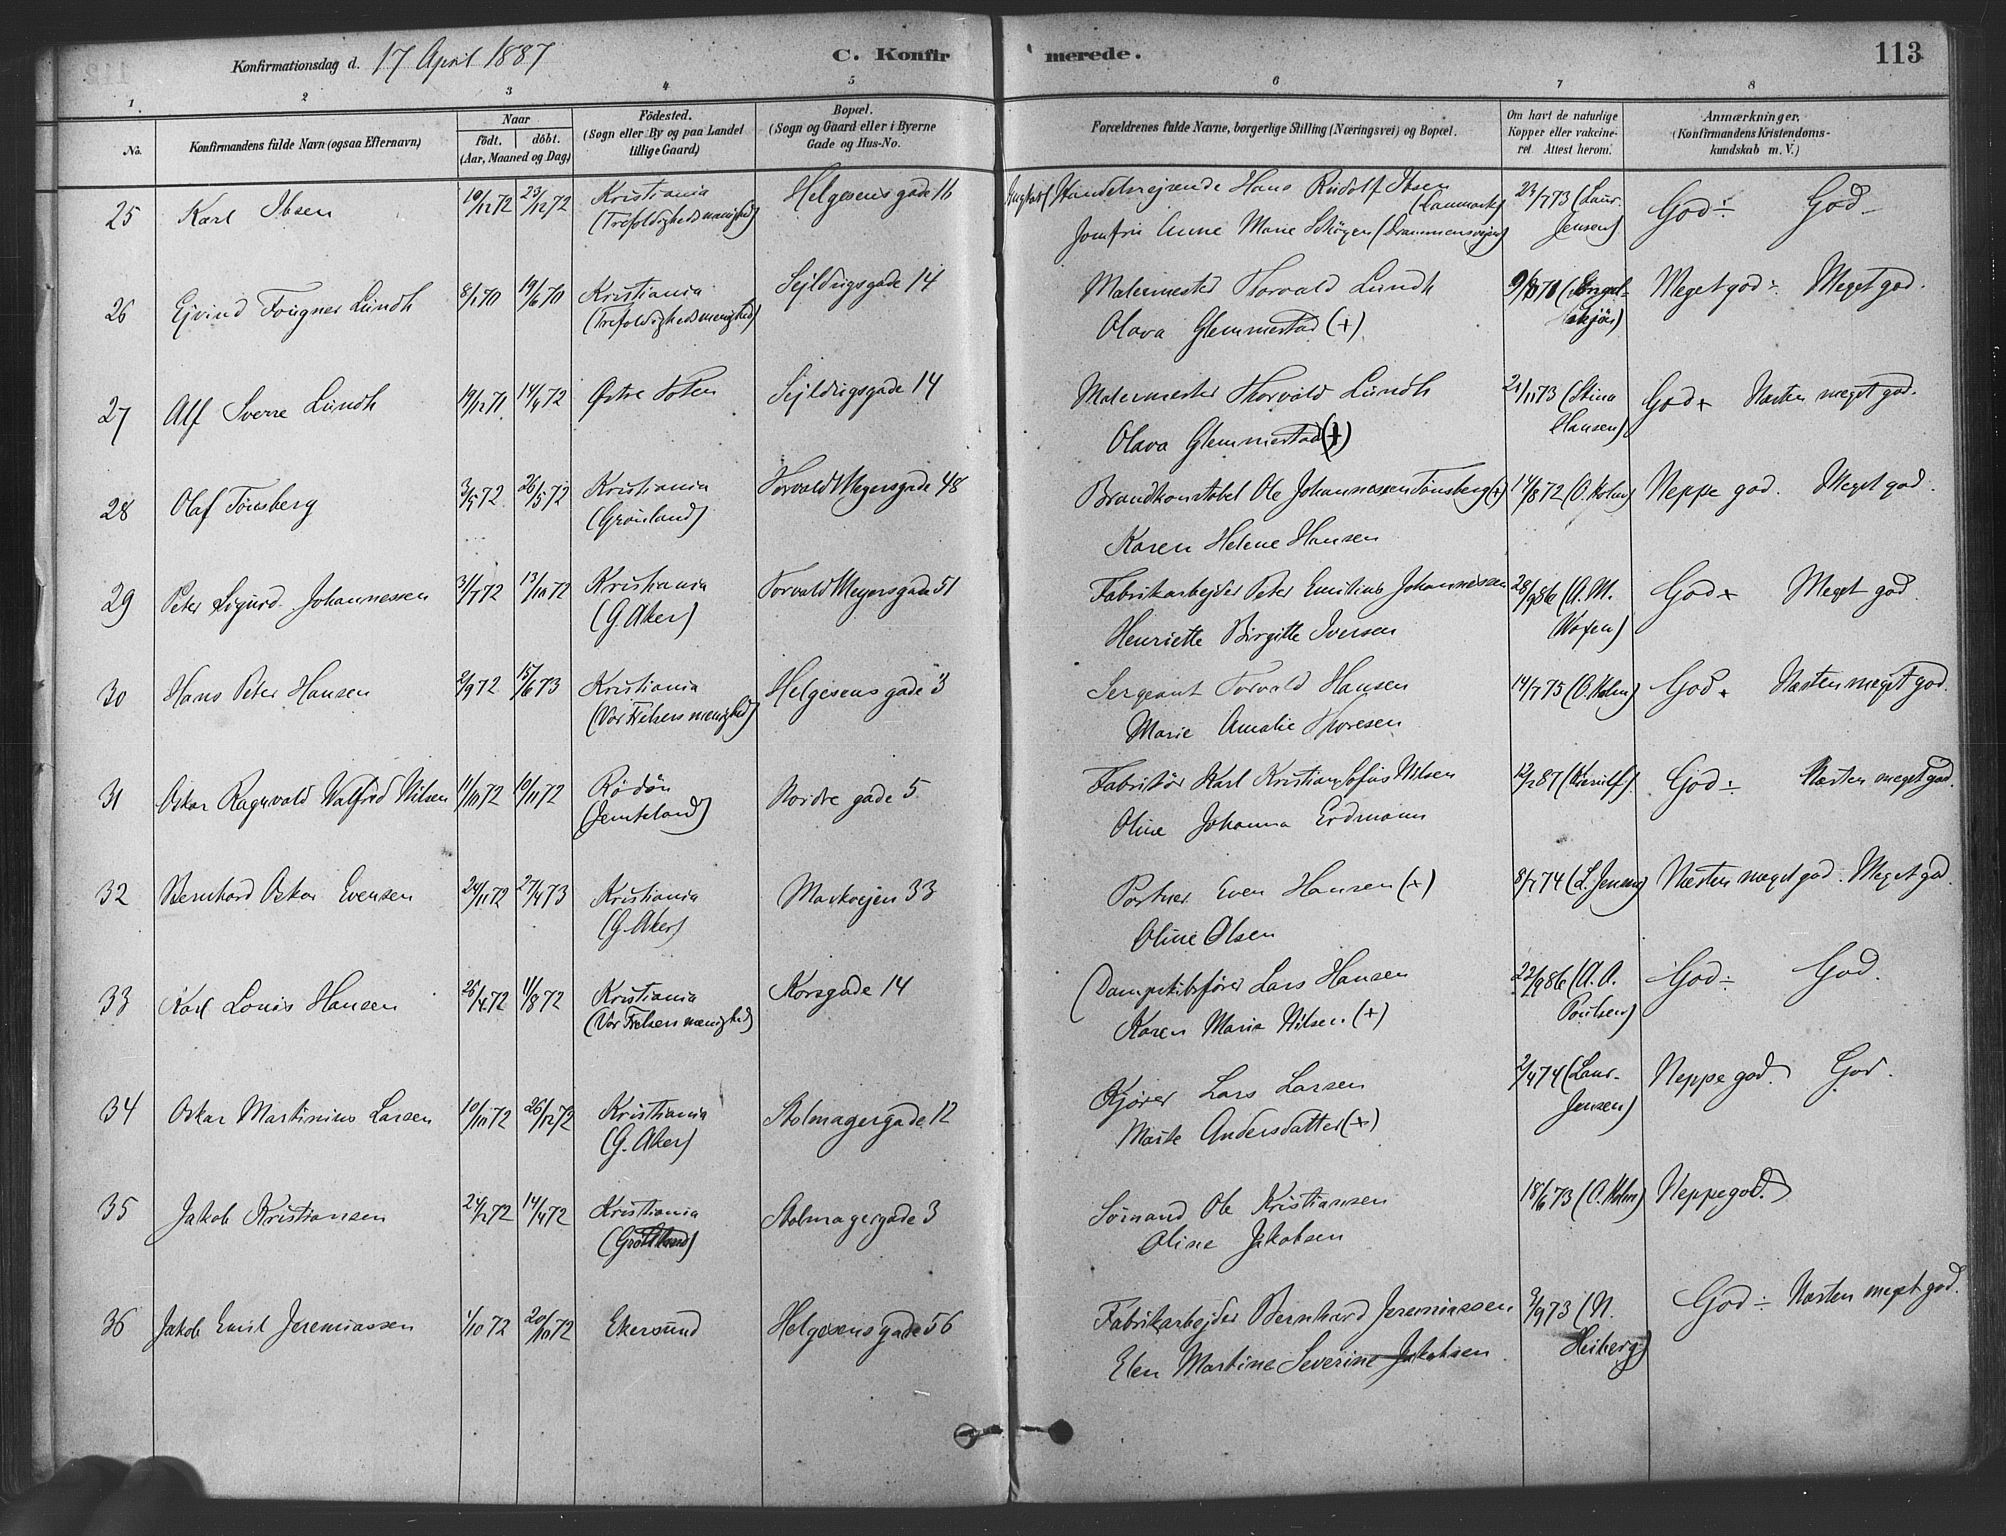 Konfirmationsdag d. 17 April 1887 C. Konfirmerede. 113
1. 2 3 4 5 6 7 8
No. Konfirmandens fulde Navn (ogsaa Efternavn)
Naar
födt. döbt.
(Aar, Maaned og Dag)
Födested.
(Sogn eller By og paa Landet
tillige Gaard.)
Bopæl.
(Sogn og Gaard eller i Byerne
Gade og Hus-No.
Forældrenes fulde Navne, borgerlige Stilling (Næringsvei) og Bopæl.
Om havt de naturlige
Kopper eller vakcine-
ret. Attest herom.
Anmærkninger,
(Konfirmandens Kristendoms-
kundskab m. V.)
25 Karl Ibsen 10/12 72 23/12 72 Kristiania Helgesens gade 16 Handelsrejsende Hans Rudolf Ibsen 23/7 73 (Laur. God ÷ God
(Trefoldighedsmenighed) (Danmark)
Jomfru Anne Marie Schøyen (Drammensvejen) Jensen)
26 Ejvind Fougner Lundh 8/1 70 19/6 70 Kristiania Sejldugsgade 14 Malermester Thorvald Lundh Meget god ÷ Meget god.
(Trefoldighedsmenighed) Olava Glemmestad (+)
27 Alf Sverre Lundh 19/12 71 14/4 72 Østre Toten Sejldugsgade 14 Malermester Thorvald Lundh 21/11 73 (Stina God + Næsten meget god.
Olava Glemmestad (+) Hansen)
28 Olaf Tønsberg 3/5 72 26/5 72 Kristiania Torvald Meyersgade 48 Brandkonstabel Ole Johannessen Tønsberg (+) 14/8 72 (O. Holm) Neppe god. Meget god.
(Grønland) Karen Helene Hansen
29 Peter Sigurd Johannessen 31/7 72 13/10 72 Kristiania Torvald Meyersgade 51 Fabrikarbejder Peter Emilius Johannessen 28/9 86 (A. M. God + Meget god.
(G. Aker) Henriette Birgitte Iversen
30 Hans Peter Hansen 2/9 72 15/6 73 Kristiania Helgesens gade 3 Sergeant Torvald Hansen 14/7 75 (O. Holm) God + Næsten meget god.
(Vor Frelsers menighed) Marie Amalie Thoresen
31 Oskar Ragnvald Walfred Nilsen 11/10 72 10/11 72 Rødøn Nordre gade 5 Fabrikør Karl Kristian Sofus Nilsen 12/2 87 God ÷ Næsten meget god.
(Jemteland) Oline Johanna Erdmann
32 Bernhard Oskar Evensen 24/11 72 27/4 73 Kristiania Markvejen 33 Portner Even Hansen (+) 8/7 74 (L. Jensen) Næsten meget god. Meget god.
(G. Aker) Oline Olsen
33 Karl Louis Hansen 25/4 72 11/8 72 Kristiania Korsgade 14 Dampskibsfører Lars Hansen 22/9 86 (A. A. God ÷ God.
(Vor Frelsers menighed) Karen Marie Nilsen (+) Poulsen)
34 Oskar Martinius Larsen 10/10 72 26/12 72 Kristiania Skolmagergade 12 Kjører Lars Larsen 2/4 74 (Laur. Neppe god. God.
(G. Aker) Marte Andersdatter (+) Jensen)
35 Jakob Kristiansen 24/2 72 14/4 72 Kristiania Skolmagergade 3 Sømand Ole Kristiansen 18/6 73 (O. Holm) Neppe god.
Oline Jakobsen
36 Jakob Emil Jeremiassen 1/10 72 20/10 72 Ekersund Helgesens gade 56 Fabrikarbejder Bernhard Jeremiassen 3/9 73 (N. God ÷ Næsten meget god.
Elen Martine Severine Jakobsen Heiberg)